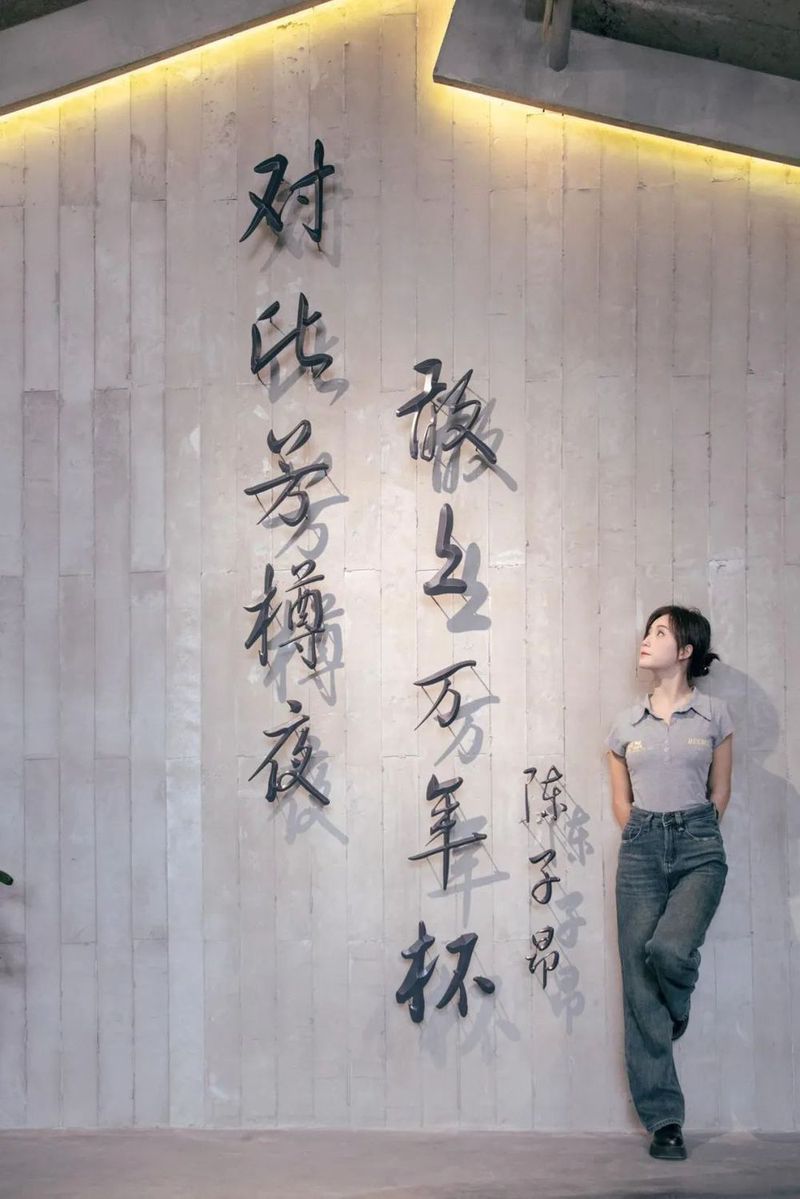 对此芳樽夜
敢上万年杯
陈子昂